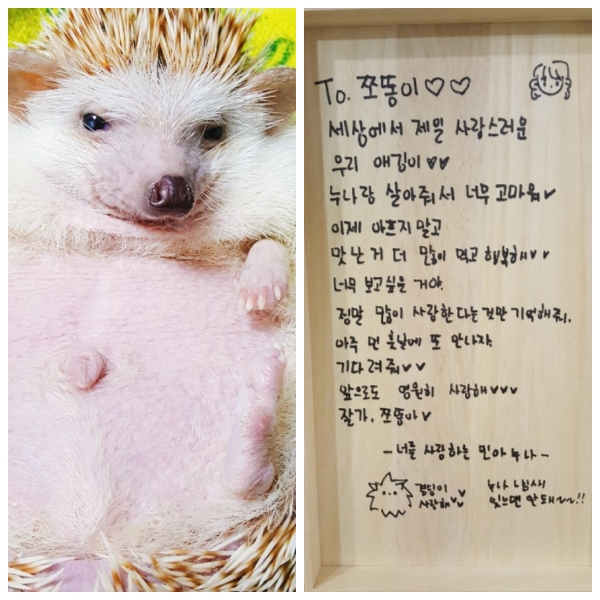 To. 쪼똥이♡♡
세상에서 제일 사랑스러운
우리 애깅이♥♥
누나랑 살아줘서 너무 고마워♥
이제 아프지말고
맛난거 더 많이 먹고 행복해♥♥
너무 보고싶을 거야.
정말 많이 사랑한다는것만 기억해줘.
아주 먼 훗날에 또 만나자
기다려줘♥♥
앞으로도 영원히 사랑해♥♥♥
잘가, 쪼똥아♥
-너를 사랑하는 민아누나-
껌딩이 사랑해♥♥
누나 냄새
잊으면 안돼~~!!